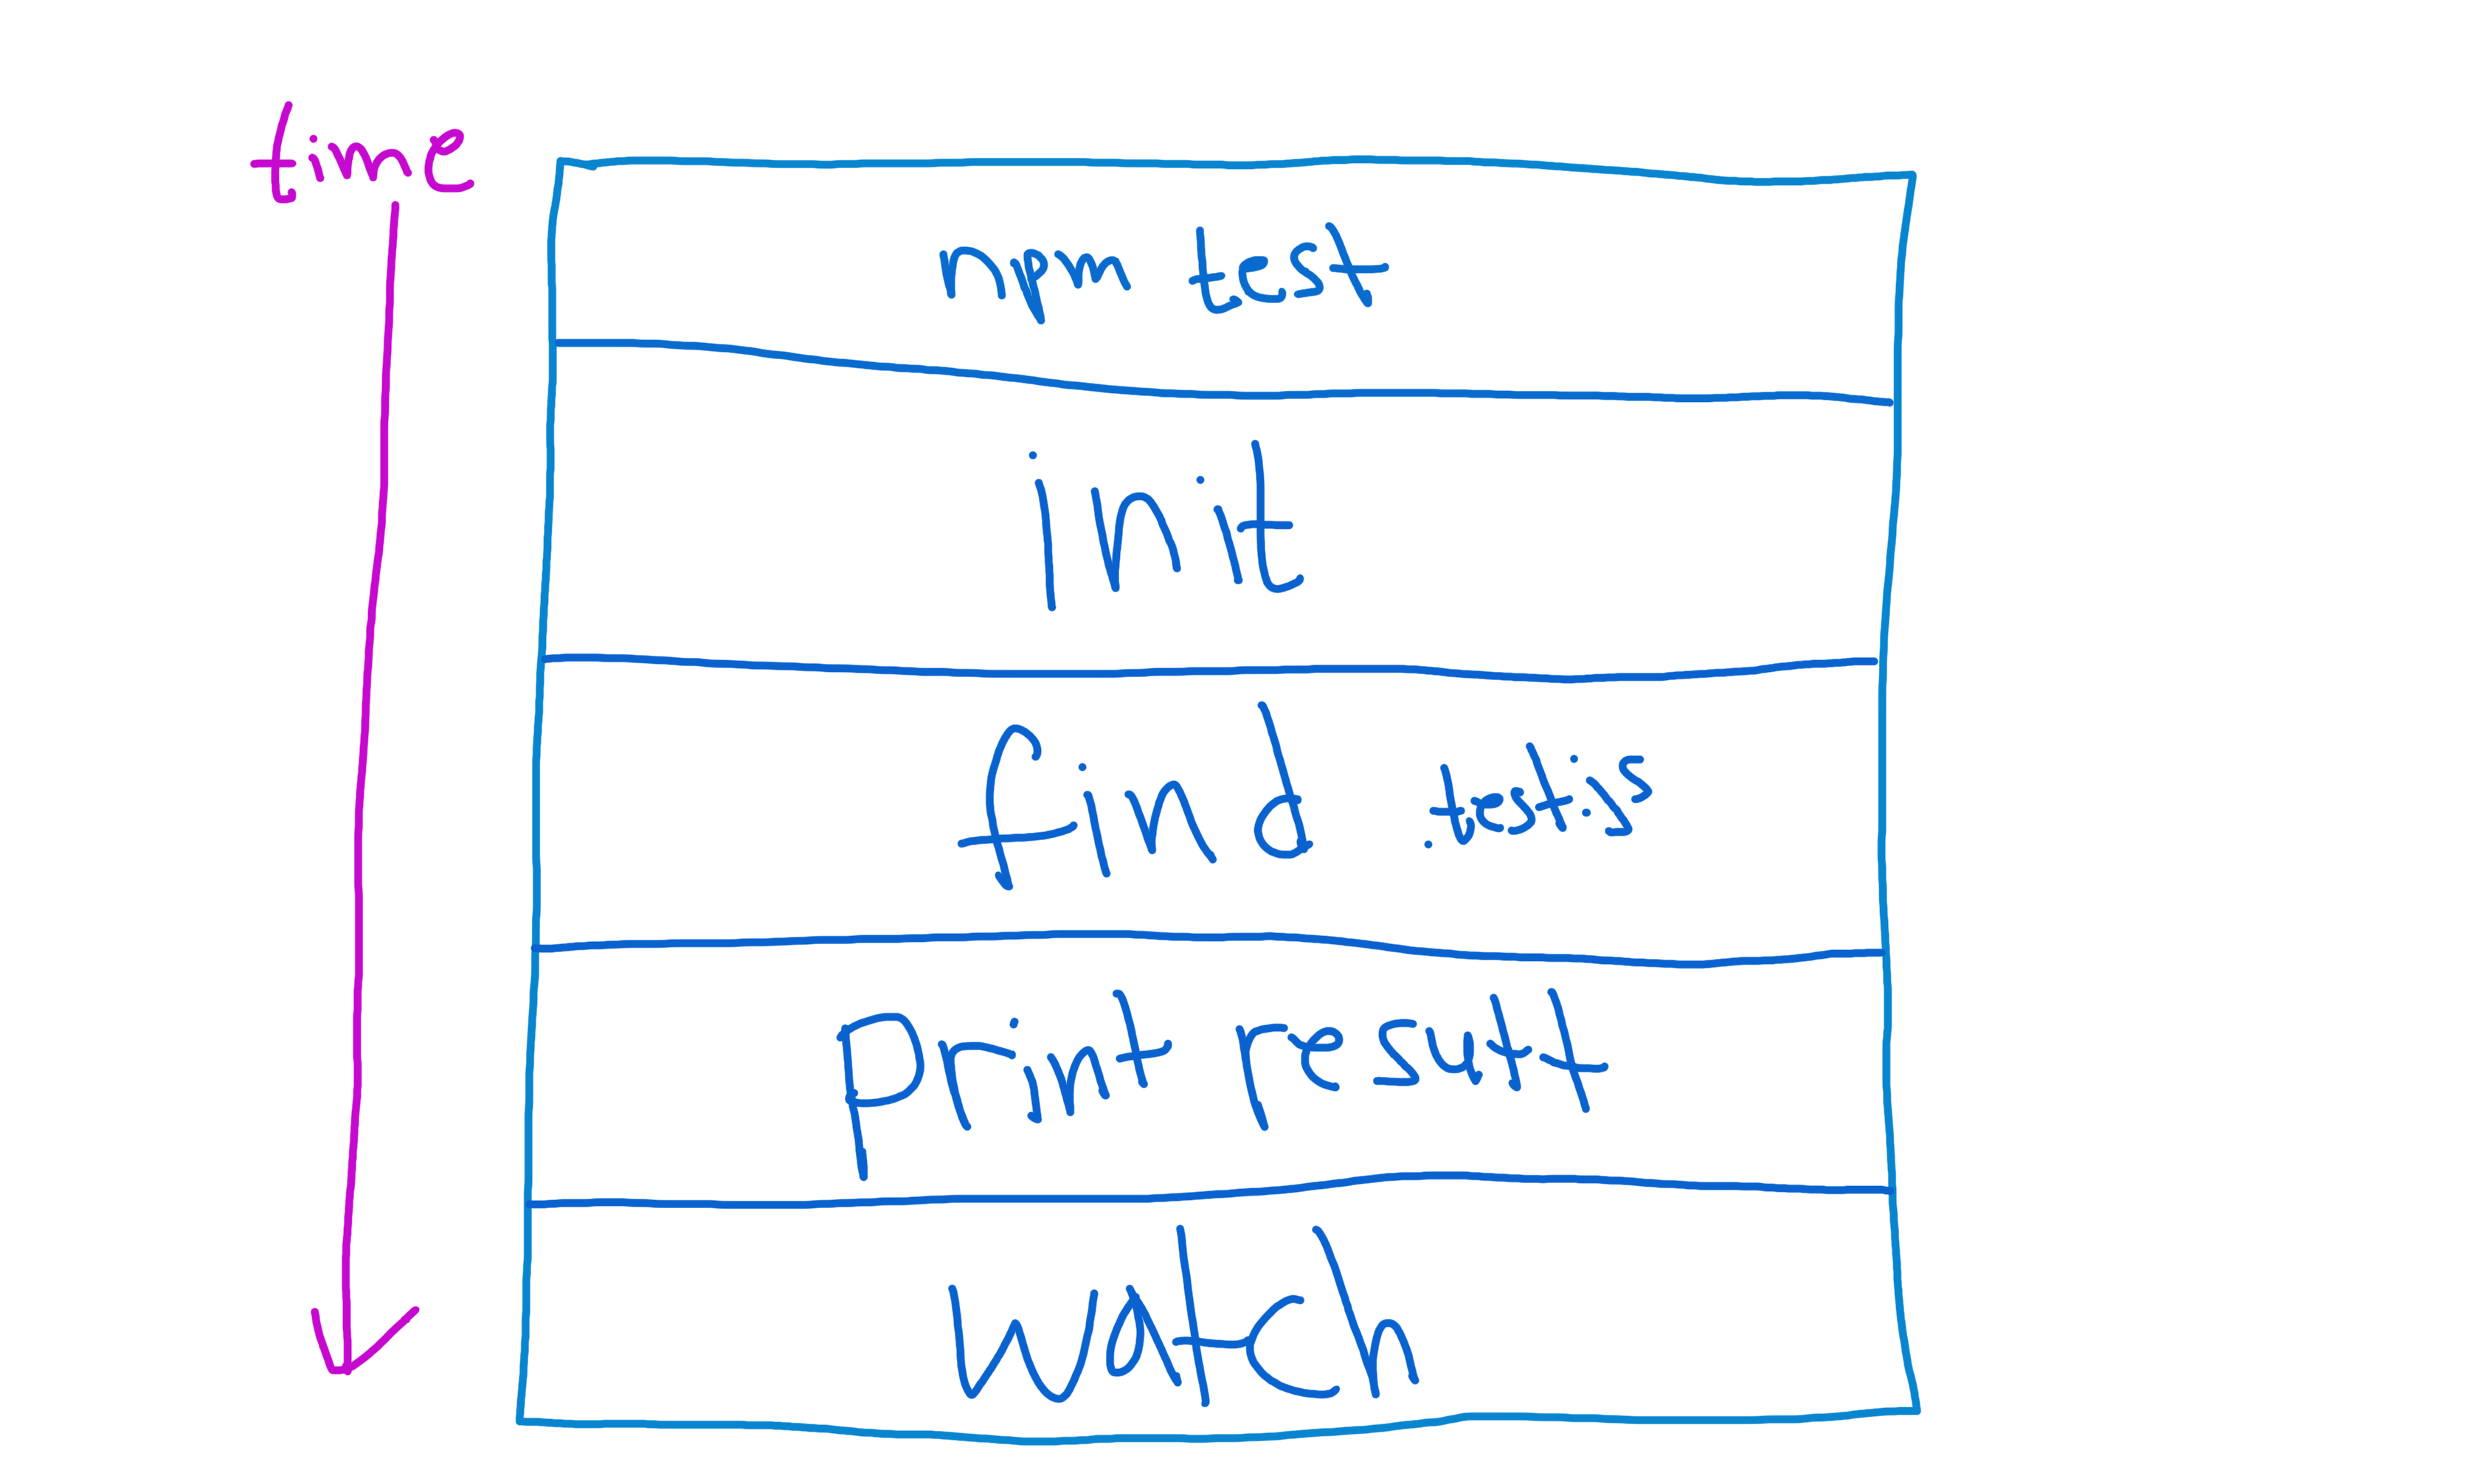 time
npm test
init
find .test.js
print result
watch